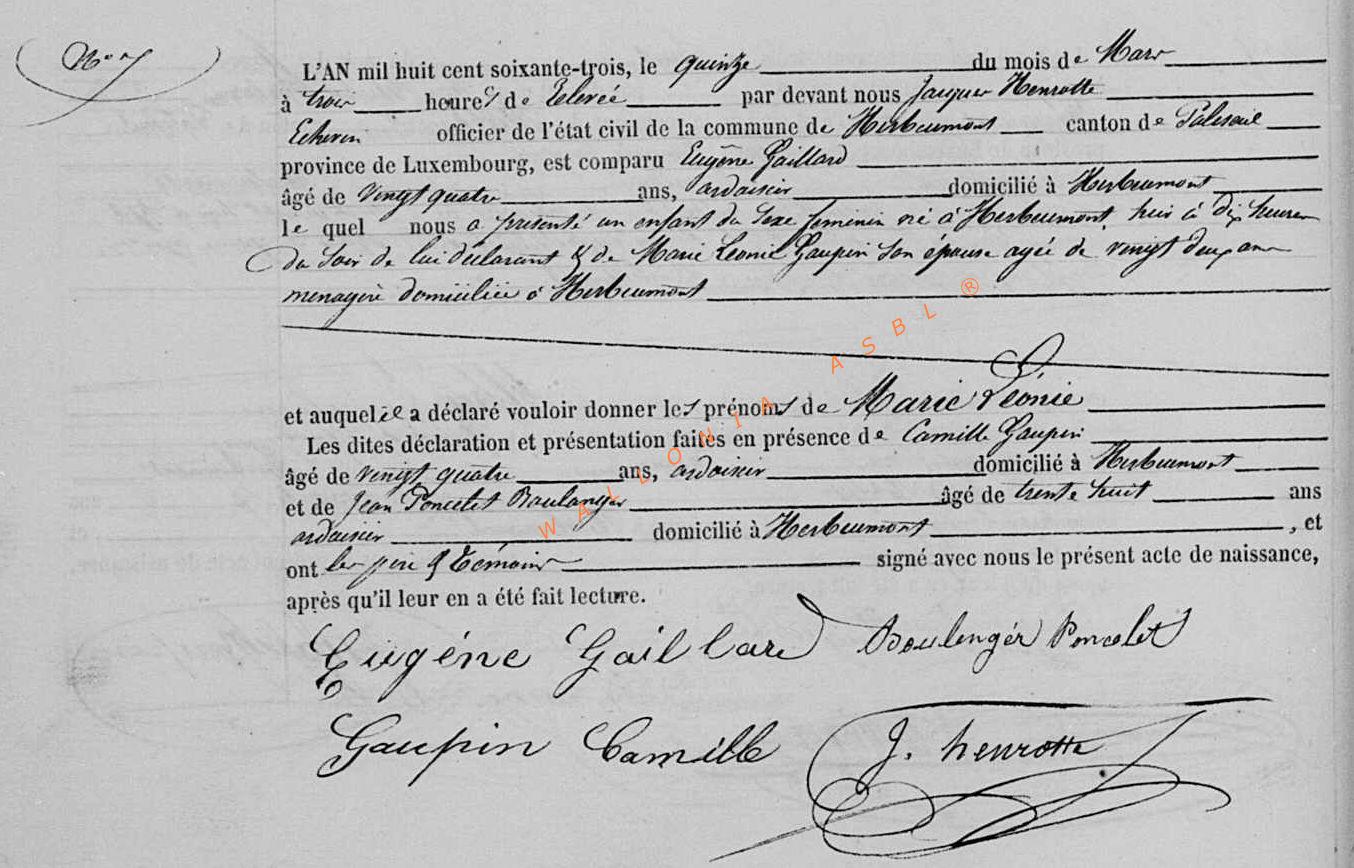 N° 7
L'AN mil huit cent soixante-trois, le quinze du mois de Mars
à trois heures de relevée par devant nous Jacques Henrotte
Echevin officier de l'état civil de la commune de Herbeumont canton de Paliseul
province de Luxembourg, est comparu Eugène Gaillard
âgé de vingt quatre ans, ardoisier domicilié à Herbeumont
le quel nous a présenté un enfant du sexe feminin né à Herbeumont, hier à dix heures
du soir de lui déclarant & de Marie Leonie Gaupin son épouse agée de vingt deux ans
menagère domiciliée à Herbeumont
et auquel elle a déclaré vouloir donner les prénoms de Marie Léonie
Les dites déclaration et présentation faites en présence de Camille Gaupin
âgé de vingt quatre ans, ardoisier domicilié à Herbeumont
et de Jean Poncelet Boulanger âgé de trente huit ans
ardoisier domicilié à Herbeumont, et
ont les père & témoins signé avec nous le présent acte de naissance,
après qu'il leur en a été fait lecture.
Eugéne Gaillard Boulengér Poncelet
Gaupin Camille J. henrotte
WALLONIA ASBL ®